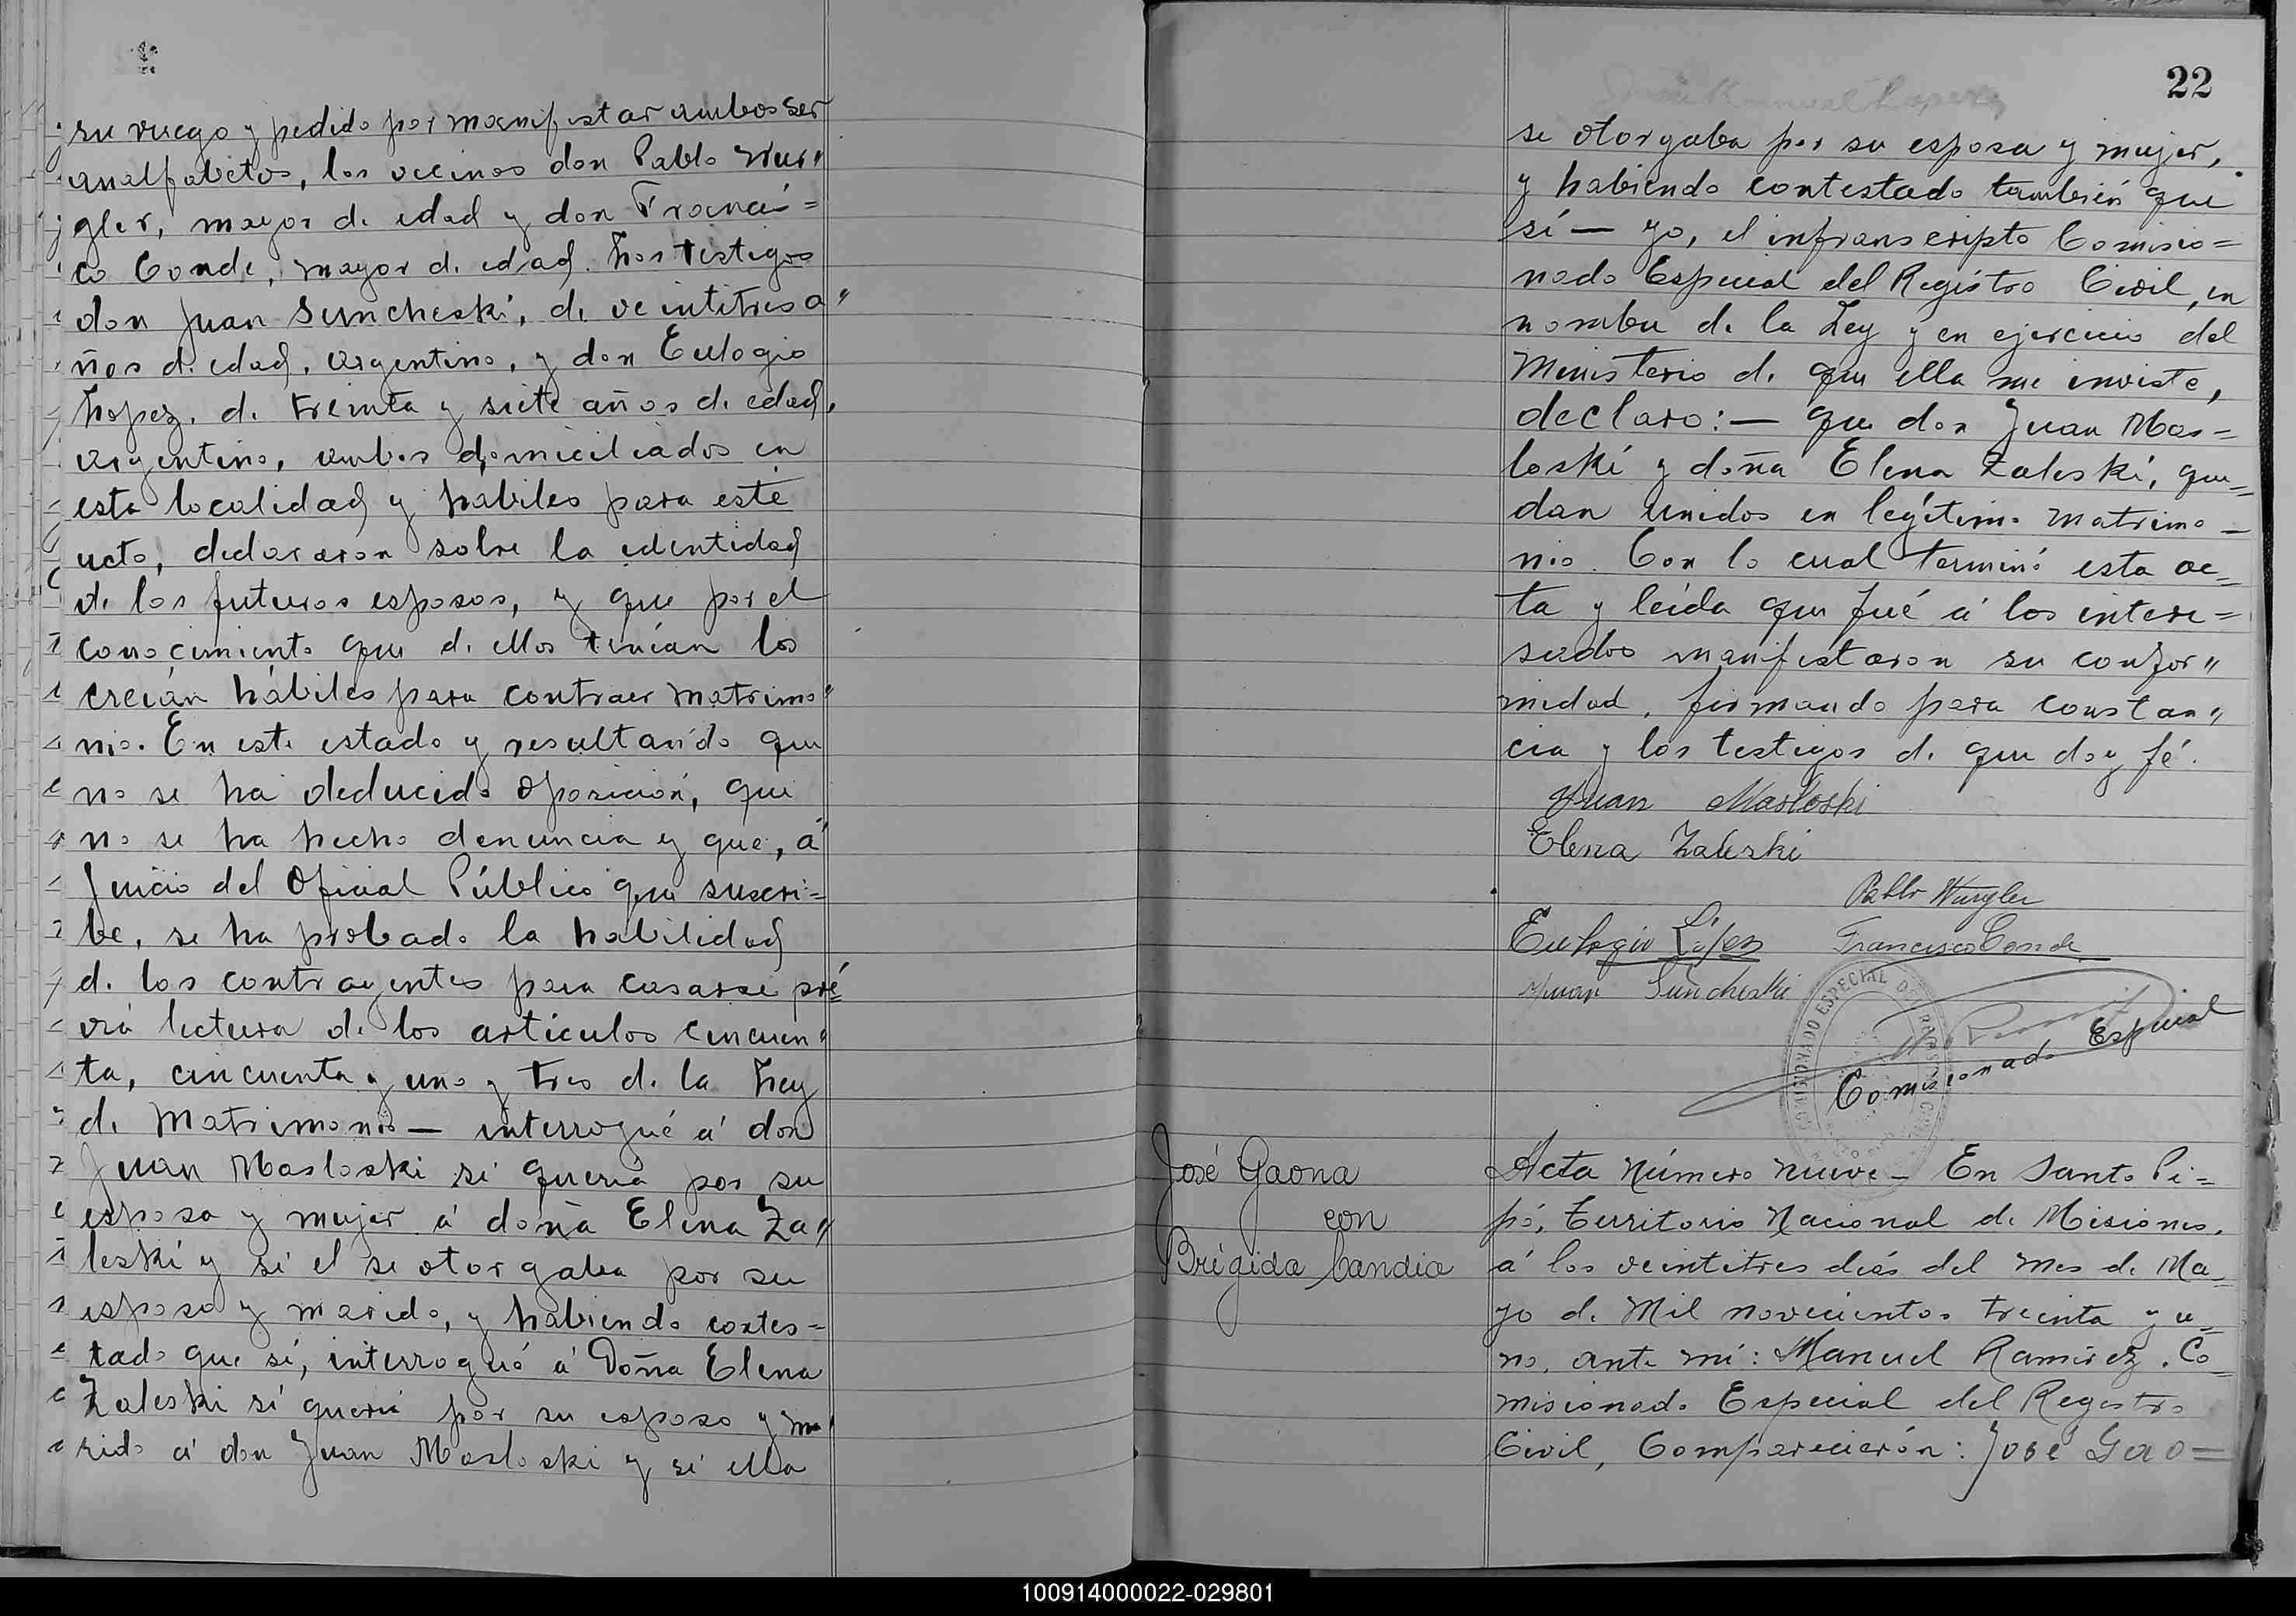 su ruego y pedido por manifestar ambos ser
analfabetos, los vecinos don Pablo Wur"
gler, mayor de edad y don Francis=
co Conde, mayor de edad. Los testigos
don Juan Suncheski, de veintitres a"
ños de edad, argentino, y don Eulogio
Lopez, de treinta y siete años de edad,
argentino, ambos domiciliados en
esta localidad y hábiles para este
acto, declararon sobre la identidad
de los futuros esposos, y que por el
conocimiento que de ellos tenían los
creían hábiles para contraer matrimo"
nio. En este estado y resultando que
no se ha deducido oposición, que
no se ha hecho denuncia y que, á
Juicio del Oficial Público que suscri=
be, se ha probado la habilidad
de los contrayentes para casarse pré=
via lectura de los artículos cincuen"
ta, cincuenta y uno y tres de la Ley
de Matrimonio — interrogué á don
Juan Mosloski si quería por su
esposa y mujer á doña Elena Za"
leski y si el se otorgaba por su
esposo y marido, y habiendo contes=
tado que sí, interrogué á Doña Elena
Zaleski si quería por su esposo y ma"
rido á don Juan Mosloski y si ella
22
se otorgaba por su esposa y mujer,
y habiendo contestado también que
sí — yo, el infranscripto Comisio=
nado Especial del Registro Civil, en
nombre de la Ley y en ejercicio del
Ministerio de que ella me inviste,
declaro: — que don Juan Mos=
loski y doña Elena Zaleski, que=
dan unidos en legítimo matrimo=
nio. Con lo cual terminó esta ac=
ta y leída que fué á los intere=
sados manifestaron su confor"
midad, firmando para constan"
cia y los testigos de que doy fé.
Juan Mosloski
Elena Zaleski
Pablo Wurgler
Eulogio López Francisco Conde
Juan Suncheski
COMISIONADO ESPECIAL DEL
Comisionado Especial
José Gaona
con
Brígida Candia
Acta Número nueve — En Santo Pi=
pó, Territorio Nacional de Misiones,
á los veintitres días del mes de Ma=
yo de Mil novecientos treinta y u=
no, ante mí: Manuel Ramirez, Co=
misionado Especial del Registro
Civil, Comparecierón: José Gao=
100914000022-029801